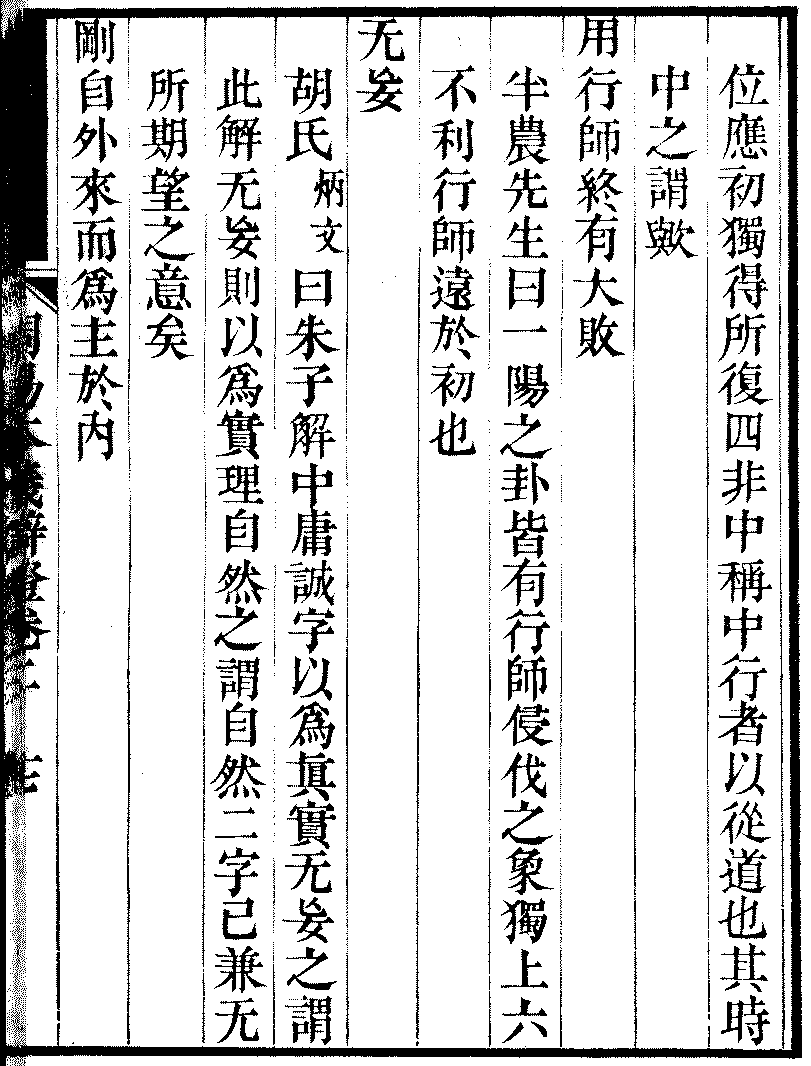 位應初獨得所復四非中稱中行者以從道也其時
中之謂歟
用行師終有大敗
半農先生曰一陽之卦皆有行師侵伐之象獨上六
不利行師遠於初也
无妄
胡氏炳文曰朱子解中庸誠字以爲眞實无妄之謂
此解无妄則以爲實理自然之謂自然二字已兼无
所期望之意矣
剛自外來而爲主於內
周易本義辨證卷二